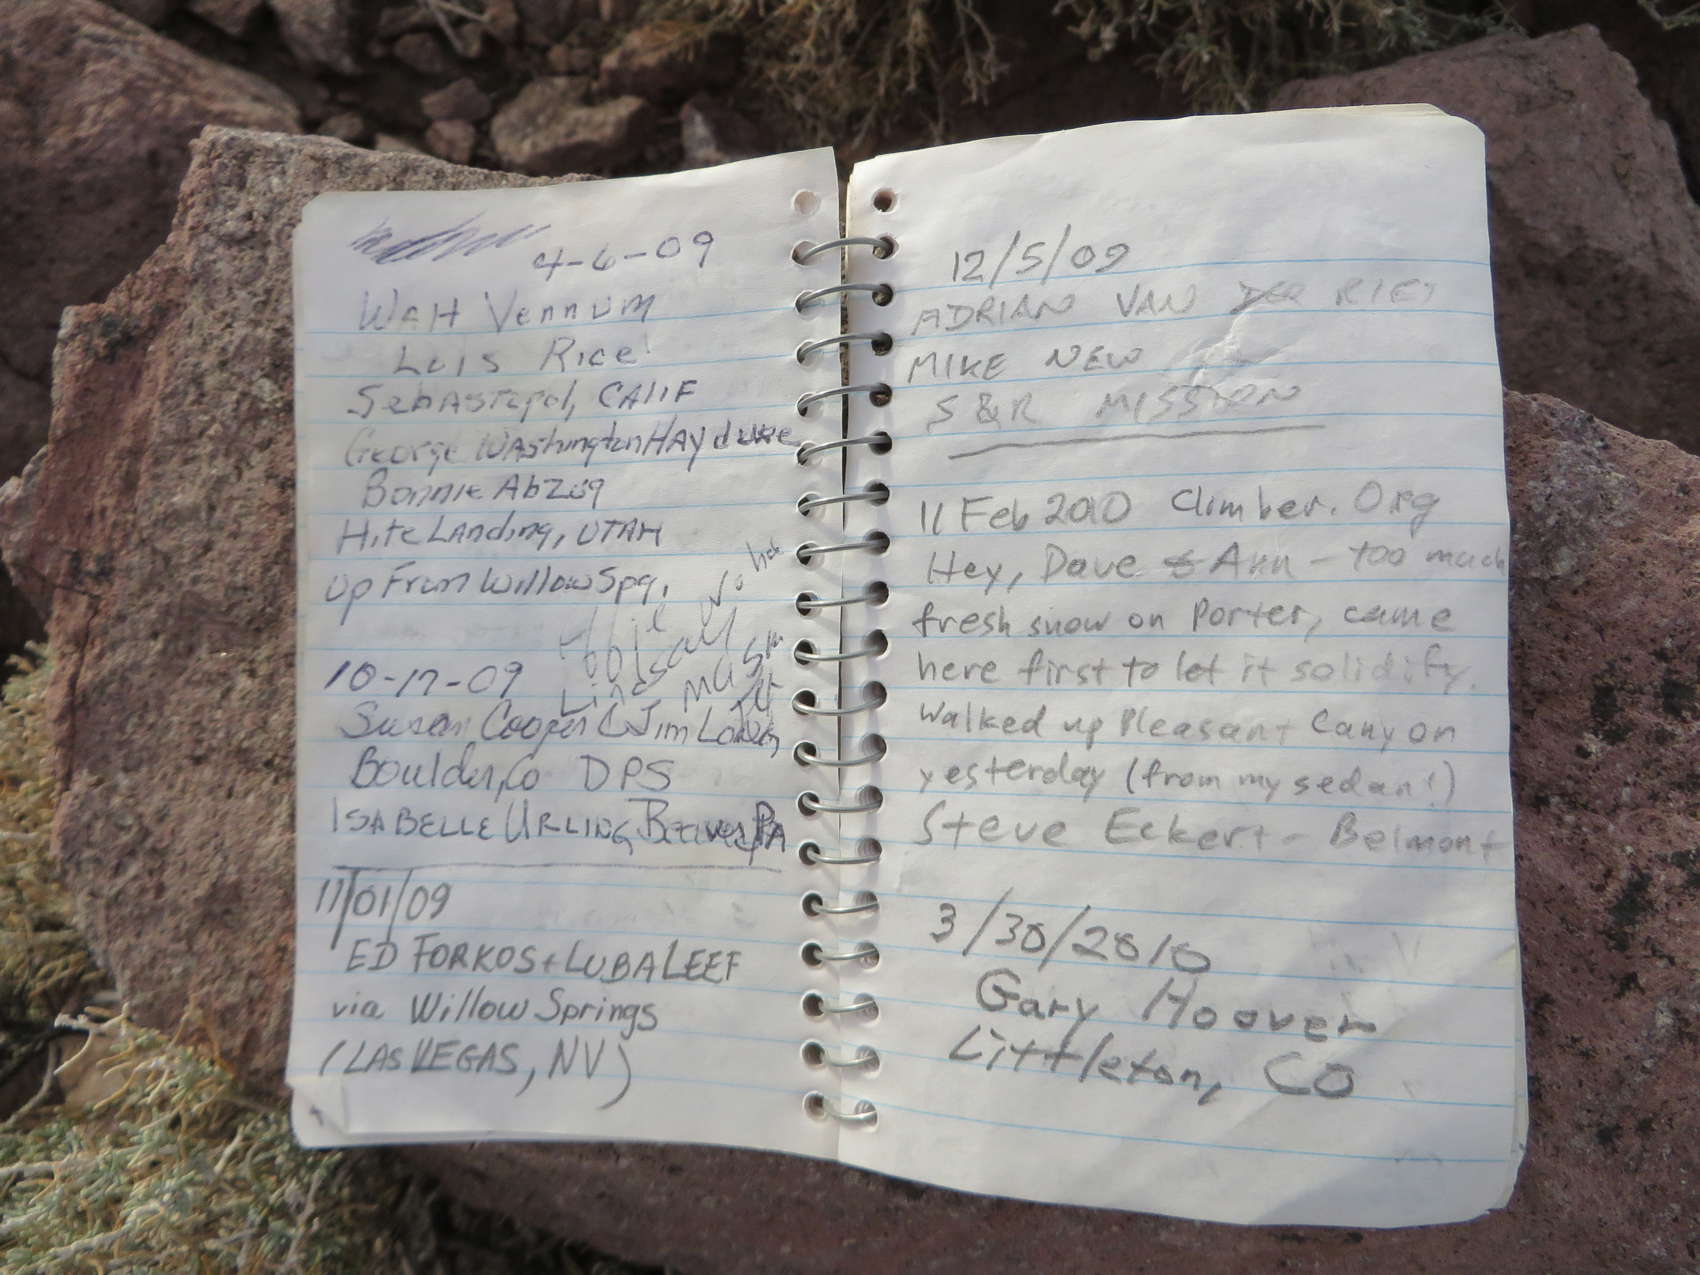 4-6-09
Walt Vennum
Luis Rice
Sebastopol, CALIF
George Washington Hayduke
Bonnie Abzug
Hite Landing, UTAH
Up From Willow Spg.
Lindsay
10-17-09
Susan Cooper & Jim
Boulder, Co DPS
ISABELLE URLING, PA
11/01/09
ED FORKOS + LUBA LEEF
via Willow Springs
(LAS VEGAS, NV)
12/5/09
ADRIAN VAN DER RIET
MIKE NEW
S&R MISSION
11 Feb 2010 Climber.Org
Hey, Dave & Ann - too much
fresh snow on Porter, came
here first to let it solidify.
Walked up Pleasant Canyon
yesterday (from my sedan!)
Steve Eckert - Belmont
3/30/2010
Gary Hoover
Littleton, CO